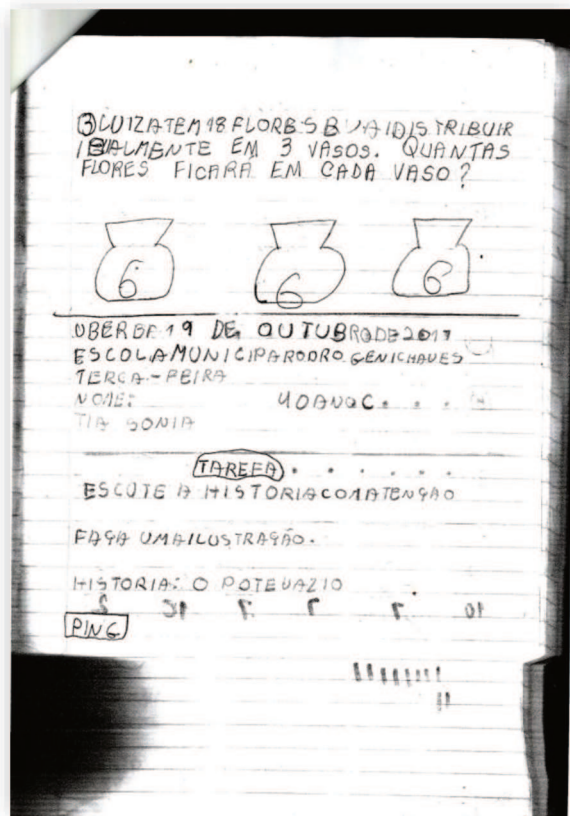 ③ LUIZATEM 18 FLORES E VAI DISTRIBUIR
IGUALMENTE EM 3 VASOS. QUANTAS
FLORES FICARÁ EM CADA VASO?
6 6 6
19 DE OUTUBRO DE 2017
TERCA-FEIRA
NOME:
TIA SONIA
TAREFA
ESCUTE A HISTORIACOMATENÇAO
FAÇA UMAILUSTRAÇÃO.
HISTORIA: O POTEVAZIO
PING